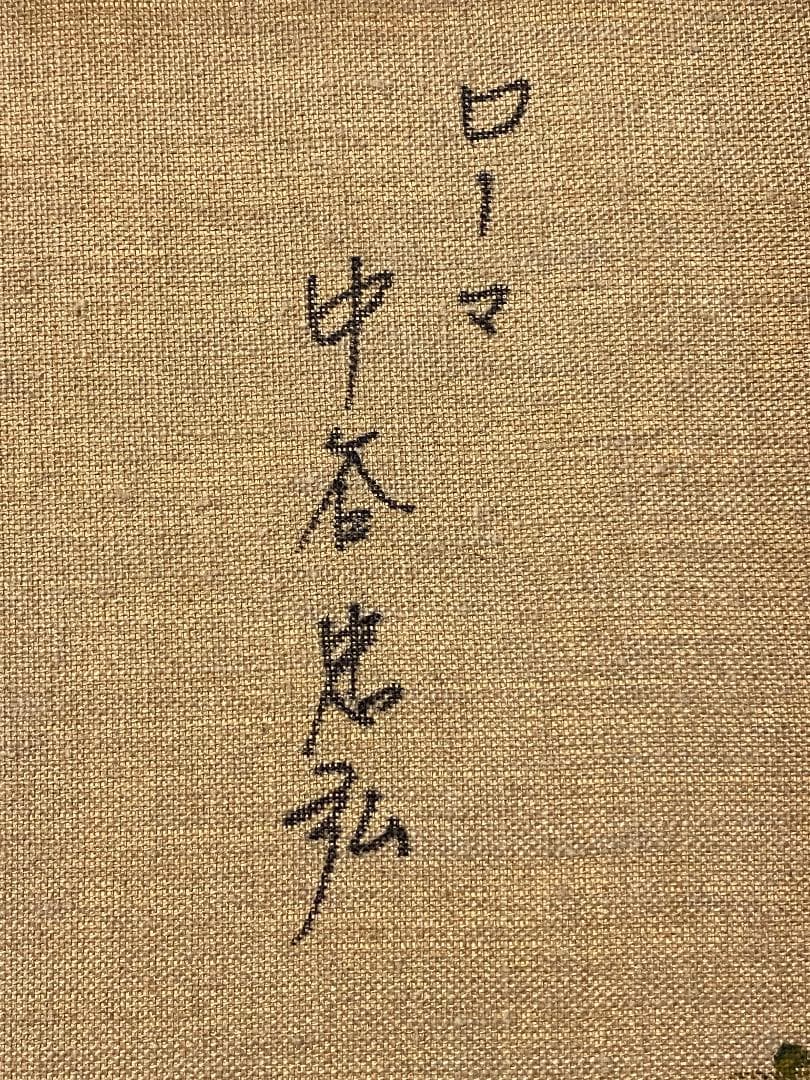 ローマ
中谷忠弘